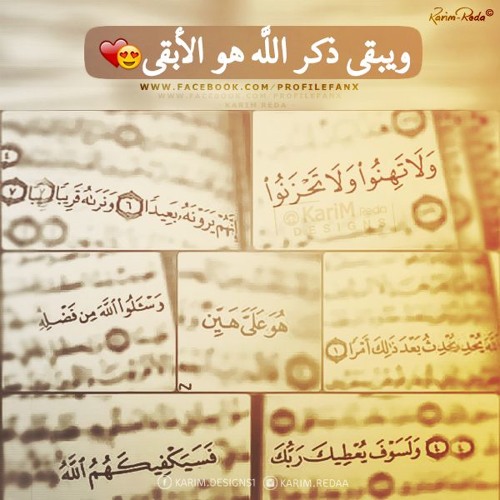 Karim-Reda©
ويبقى ذكر الله هو الأبقى
WWW.FACEBOOK.COM/PROFILEFANX
WWW.FACEBOOK.COM/PROFILEFANX
KARIM REDA
وَلَا تَهِنُوا۟ وَلَا تَحْزَنُوا۟
@KariM Reda
DESIGNS
إِنَّهُمْ يَرَوْنَهُۥ بَعِيدًا ٦ وَنَرَىٰهُ قَرِيبًا ٧
وَسْـَٔلُوا۟ ٱللَّهَ مِن فَضْلِهِۦ
هُوَ عَلَىَّ هَيِّنٌ
ٱللَّهَ يُحْدِثُ بَعْدَ ذَٰلِكَ أَمْرًا ١
فَسَيَكْفِيكَهُمُ ٱللَّهُ
٤ وَلَسَوْفَ يُعْطِيكَ رَبُّكَ
KARIM.DESIGNS1 KARIM.REDAA